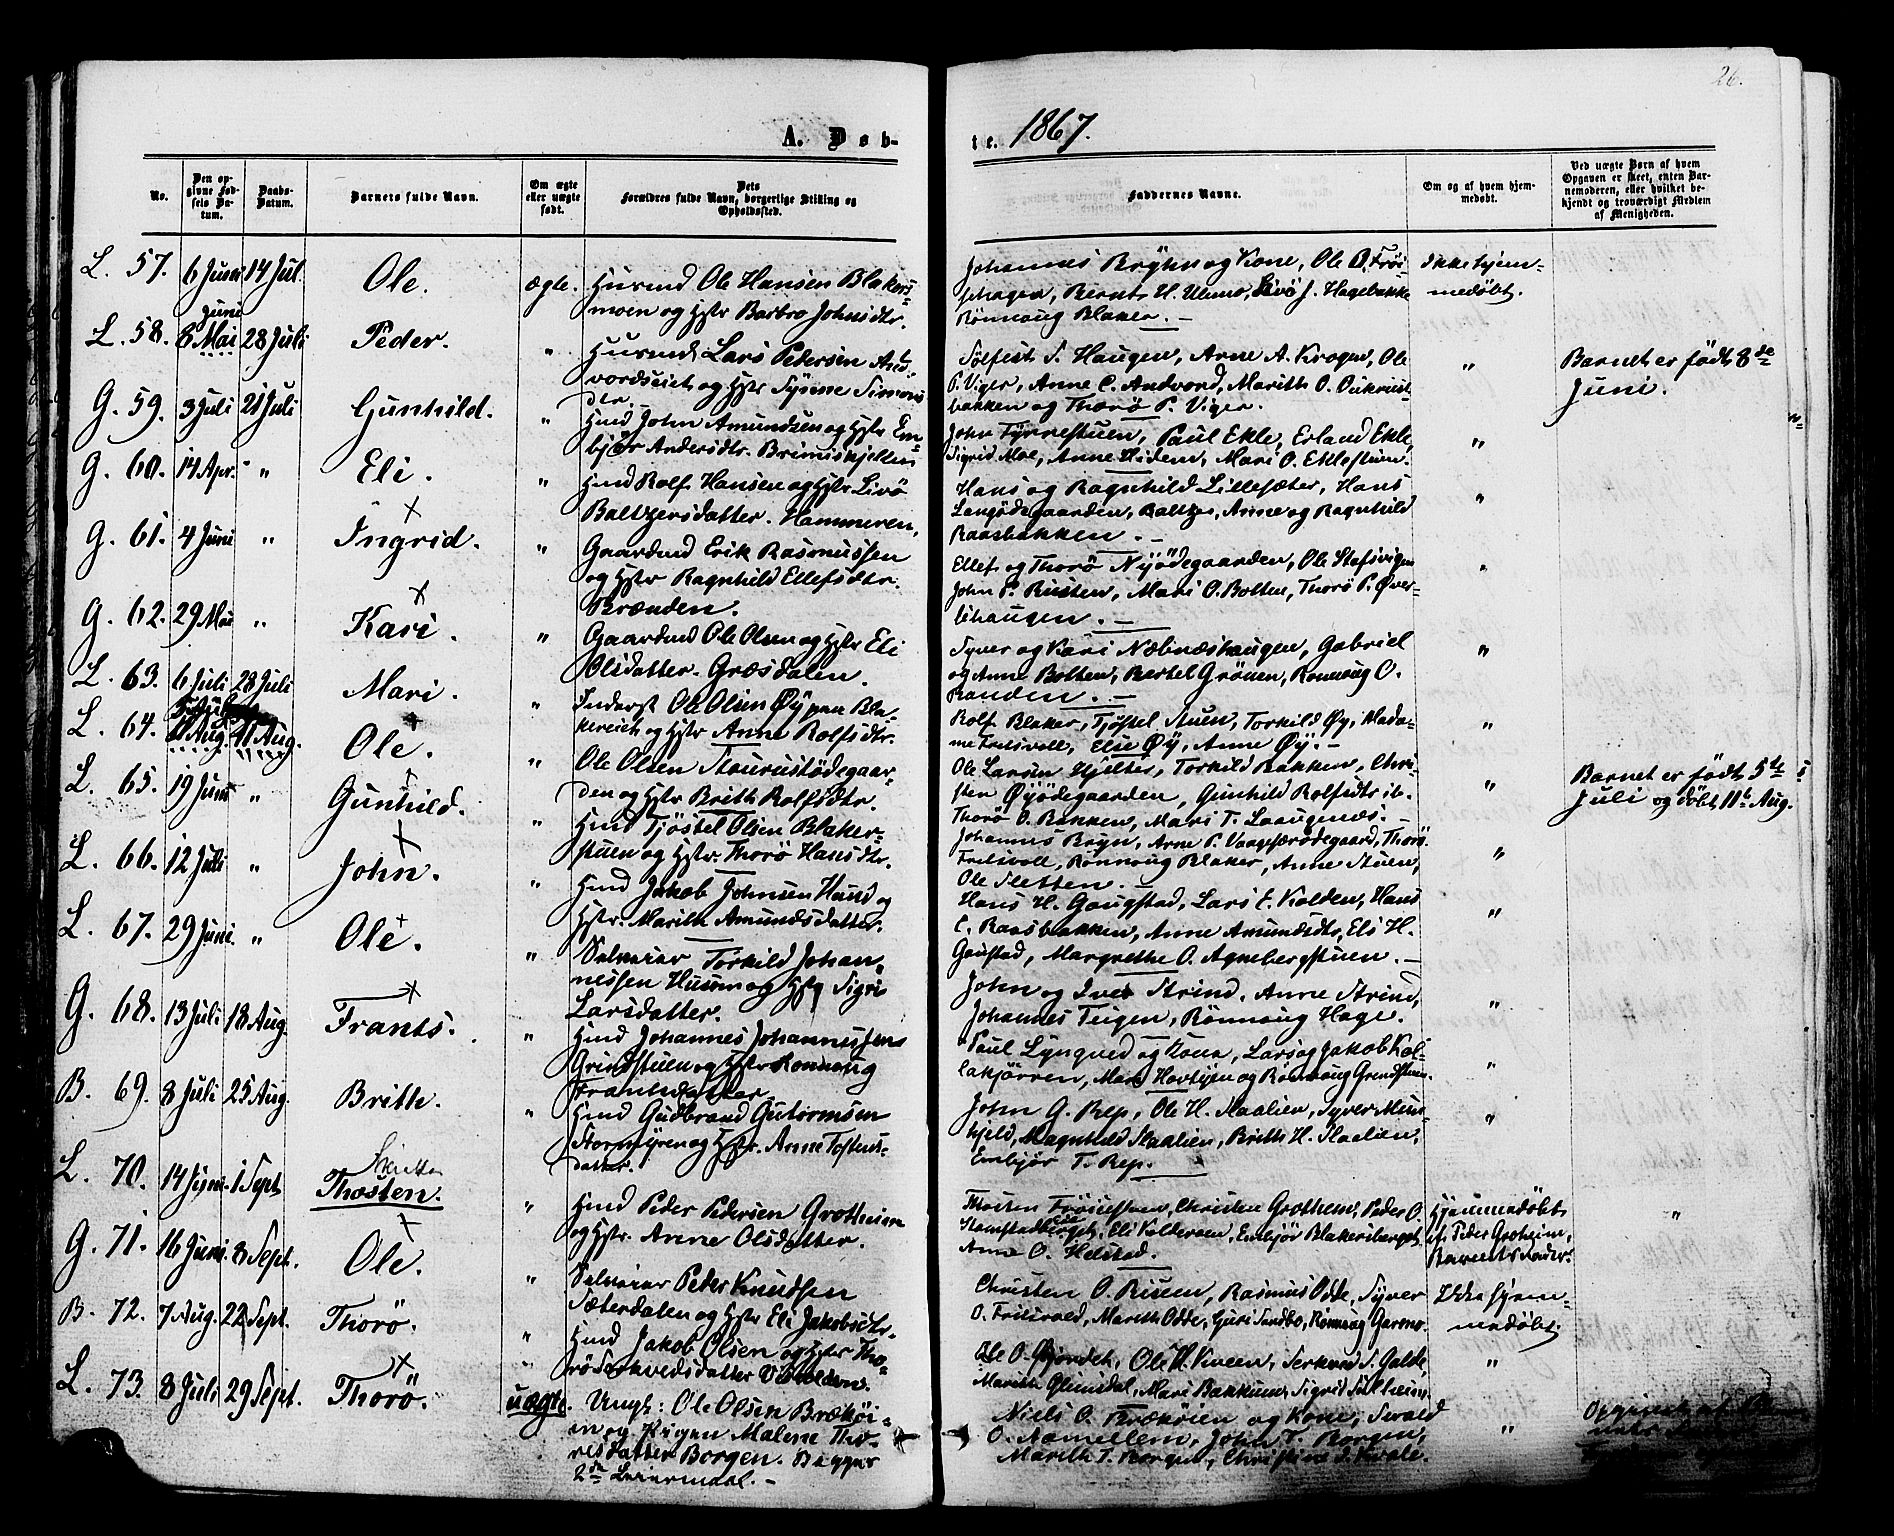 26.
A. Døb-
te. 1867.
No.
Den opgivne Fødsels Datum.
Daabs-Datum.
Barnets fulde Navn.
Om ægte eller uægte født.
Dets Forældres fulde Navn, borgerlige Stilling og Opholdssted.
Faddernes Navne.
Om og af hvem hjemmedøbt.
Ved uægte Børn af hvem Opgaven er skeet, enten Barnemoderen, eller hvilket bekjendt og troværdigt Medlem af Menigheden.
L. 57. 6 Juni 14 Jul. Ole. ægte.
Husmd Ole Hansen Blakers=
moen og Hstr Barbro Johnsdtr.
Johannes Bryhn og Kone, Ole
Hagebakke
Rönnaug Blaker. —
Ikke hjem=
medöbt.
L. 58. Juni
6 Mai 28 Juli Peder. "
Husmd. Lars Pedersen And=
vordseiet og Hstr Synne Simons
dtr.
Solfest S. Haugen, Arne A. Krogen, Ole
P. Viger, Anne C. Andvord, Marith O.
bakken og Thorö P. Viger.
"
Barnet er födt 8de
Juni.
G. 59. 3 Juli 21 Juli Gunhild. "
Hmd John Amundsen og Hstr Em=
björ Andersdtr. Brimiskjellen
John Tynnestuen, Paul Ekle, Erland Ekle,
Sigrid Moe, Anne Hiden, Mari O. Eklestuen.
"
G. 60. 14 Apr. " Eli. "
Hmd Rolf Hansen og Hstr Livö
Baltzersdatter. Hammeren.
Hans og Ragnhild Lillesæter, Hans
Baltzer, Anne og Ragnhild
Raasbakken. —
"
G. 61. 4 Juni " Ingrid. "
Gaardmd Erik Rasmussen
og Hstr Ragnhild Ellefsdtr.
Brænden.
Ellef og Thorö Nyödegaarden, Ole
John P. Rusten, Mari O. Bolten, Thorö P. Øver=
lihaugen. —
"
G. 62. 29 Mai " Kari. "
Gaardmd Ole Olsen og Hstr Eli
Olsdatter. Græsdalen.
Syver og Kari Næbnæshaugen, Gabriel
og Anne Bolten, Bertel Grönen, Ronnaug O.
Randen. —
"
L. 63. 6 Juli 28 Juli Mari. "
Inderst Ole Olsen Øy paa Bla=
kereiet og Hstr Anne Rolfsdtr.
Rolf Blaker, Tjöstel Stuen, Torkild Øy, Mada=
me Frilsvoll, Else Øy, Anne Øy. —
"
L. 64. 5 Juli
11 Aug. 11 Aug. Ole. "
Ole Olsen Staurustödegaar=
den og Hstr Brith Rolfsdtr.
Ole Larsen Hjelter, Torkild Bakken, Chri=
sten Øyödegaarden, Gunhild Rolfsdtr ib.
Thorö O. Bakken, Mari T. Laaugenæs. —
"
Barnet er födt 5te
Juli og döbt 11te Aug.
L. 65. 19 Juni " Gunhild. "
Hmd Tjöstel Olsen Blaker=
stuen og Hstr. Thorö Hansdtr.
Johannes Bryn, Arne P. Thorö
Frilsvoll, Rönnaug Blaker, Anne Stuen,
Ole Sletten. —
"
L. 66. 12 Juli " John. "
Hmd Jakob Johnsen Haug og
Hstr. Marith Amundsdatter.
Hans H. Gaugstad, Lars E. Kolden, Hans
E. Raasbakken, Anne Amundsdtr, Els H.
Gaustad, Margrethe O. Agnebergstuen. —
"
L. 67. 29 Juni. " Ole. "
Selveier Torkild Johan=
nessen Husom og Hstr Sigri
Larsdatter.
John og Iver Strind, Anne Strind,
Johannes Teigen, Rönnaug Hage.
"
G. 68. 13 Juli 18 Aug. Frants. "
Hmd Johannes Johannessen
Grindstuen og Hstr Ronnaug
Frantsdatter.
Paul Lyngved og Kone, Lars og Jakob Kol=
lakjörren, Mari og Rönnaug Grindstuen.
"
B. 69. 8 Juli 25 Aug. Brith. "
Hmd Gudbrand Gutormsen
Stormyren og Hstr. Anne Tostens=
datter.
John G. Rep, Ole H. Staalien, Syver
Magnhild Staalien, Brith H. Staalien,
Embjör T. Rep.
"
L. 70. 14 Juni. 1 Sept Thosten. "
Hmd Peder Pedersen Grotheim
og Hstr. Anne Olsdatter.
Thosten Christen Grotheim, Peder O.
Eli Kolderven, Embjör Blakersberget,
Anne O. Helstad.
Hjemmedöbt
af Peder Groheim,
Barnets Fader.
"
G. 71. 16 Juni. 8 Sept. Ole. "
Selveier Peder Knudsen
Sæterdalen og Hstr Eli Jakobsdtr.
Christen O. Risen, Rasmus Odde, Syver
O. Frilsvold, Marith Odde, Guri Sandbo, Rönnaug Garmo.
Ikke hjem=
medöbt.
B. 72. 7 Aug. 22 Sept. Thorö. "
Hmd Jakob Olsen og Hstr Tho=
rö
Ole O. Gjördet, Ole H. Kveen, S. Galde,
Marith Glimsdal, Mari Bakkum, Sigrid Sulheim.
"
L. 73. 8 Juli 29 Sept. Thorö. uægte.
Ungk: Ole Olsen Bræköi=
en og Pigen Malene Tho=
resdatter Borgen. Begges
2de Leiermaal. —
Niels O. Bræköien og Kone,
John T. Borgen,
Marith T. Borgen, Christine S. Kvale.
"